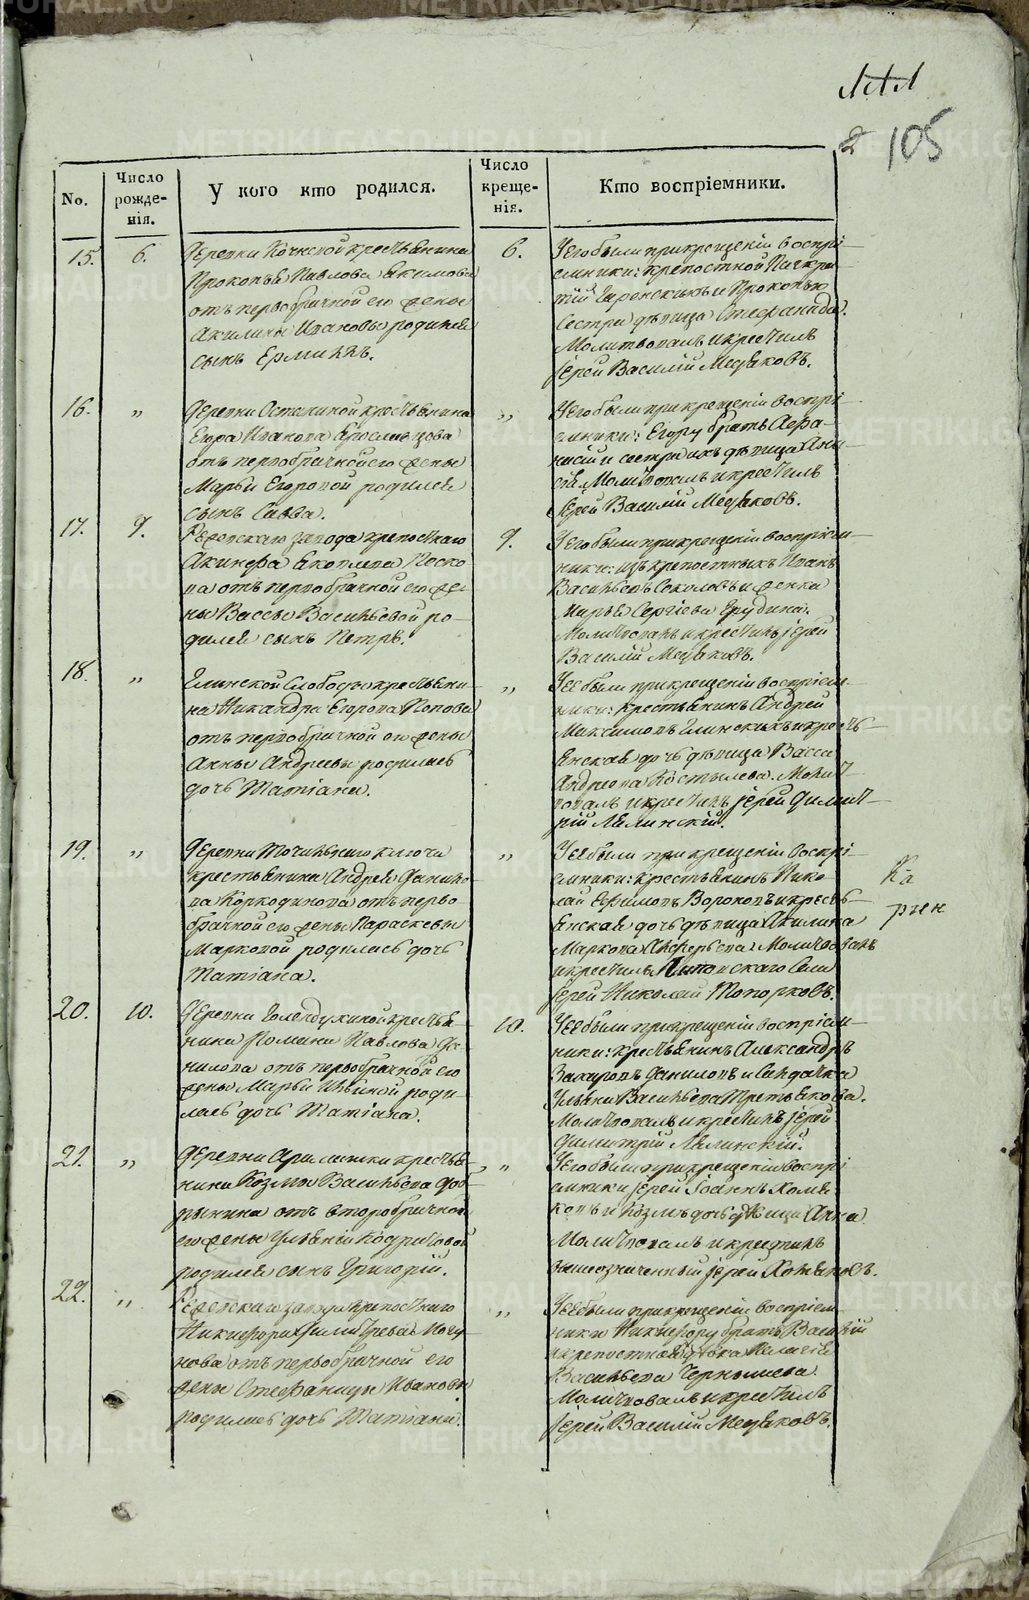 105
No.
Число рожде-
нія.
У кого кто родился.
Число креще-
нія.
Кто воспріемники.
15.
6.
Деревни Кочневой крестьянина
Прокопья Павлова Екимова
отъ первобрачной его жены
Акилины Ивановы родился
сынъ Ермилъ.
6.
У его были при крещеніи воспрі-
емники: крепостной
и Прокопью
сестра дѣвица Стефанида.
Молитвовалъ и крестилъ
іерей Василій Медяковъ.
16.
"
Деревни Останиной крестьянина
Егора Иванова
отъ первобрачной его жены
Марьи Егоровой родился
сынъ Савва.
"
У его были при крещеніи воспрі-
емники: Егору братъ Афа-
насій и сестра ихъ дѣвица
Молитвовалъ и крестилъ
іерей Василій Медяковъ.
17.
9.
Режевскаго завода крепостнаго
Акинфа
отъ первобрачной его же-
ны Вассы Васильевой ро-
дился сынъ Петръ.
9.
У его были при крещеніи воспріем-
ники: изъ крепостныхъ Иванъ
Васильевъ Соколовъ и женка
Марья Сергіева
Молитвовалъ и крестилъ іерей
Василій Медяковъ.
18.
"
Глинской Слободы крестьяни-
на Никандра Егорова Попова
отъ первобрачной его жены
Анны Андреевы родилась
дочь Татіана.
"
У ее были при крещеніи воспріем-
ники: крестьянинъ Андрей
Максимовъ Глинскихъ и кресть-
янская дочь дѣвица Васса
Андреева Костылева. Молит-
вовалъ и крестилъ іерей Димит-
рій Лялинскій.
19.
"
Деревни Точильнаго ключа
крестьянина Андрея Данило-
ва Коркодинова отъ перво-
брачной его жены Параскевы
Марковой родилась дочь
Татіана.
"
У ее были при крещеніи воспрі-
емники: крестьянинъ Нико-
лай Ефимовъ Вороновъ и кресть-
янская дочь дѣвица Акилина
Маркова Молитвовалъ
и крестилъ Липовскаго Села
іерей Николай Топорковъ.
20.
10.
Деревни Голендухиной крестья-
нина Романа Павлова Да-
нилова отъ первобрачной его
жены Марьи Ильиной роди-
лась дочь Татіана.
10.
У ее были при крещеніи воспріем-
ники: крестьянинъ Александръ
Захаровъ Даниловъ и Солдатка
Ульяна Васильева Третьякова.
Молитвовалъ и крестилъ іерей
Димитрій Лялинскій.
21.
"
Деревни крестья-
нина Козмы Васильева Доб-
рынина отъ второбрачной
его жены Ульяны
родился сынъ Григорій.
"
У его были при крещеніи воспрі-
емники іерей Іоаннъ Хомя-
ковъ и Козмѣ дочь дѣвица Анна
Молитвовалъ и крестилъ
вышеозначенный іерей Хомяковъ.
22.
"
Режевскаго завода крепостнаго
Никифора
отъ первобрачной его
жены Стефаниды Ивановы
родилась дочь Татіана.
"
У ее были при крещеніи воспріем-
ники Никифору братъ Василій
и крепостная Пелагія
Васильева Чернышева
Молитвовалъ и крестилъ
іерей Василій Медяковъ.
METRIKI.GASO-URAL.RU